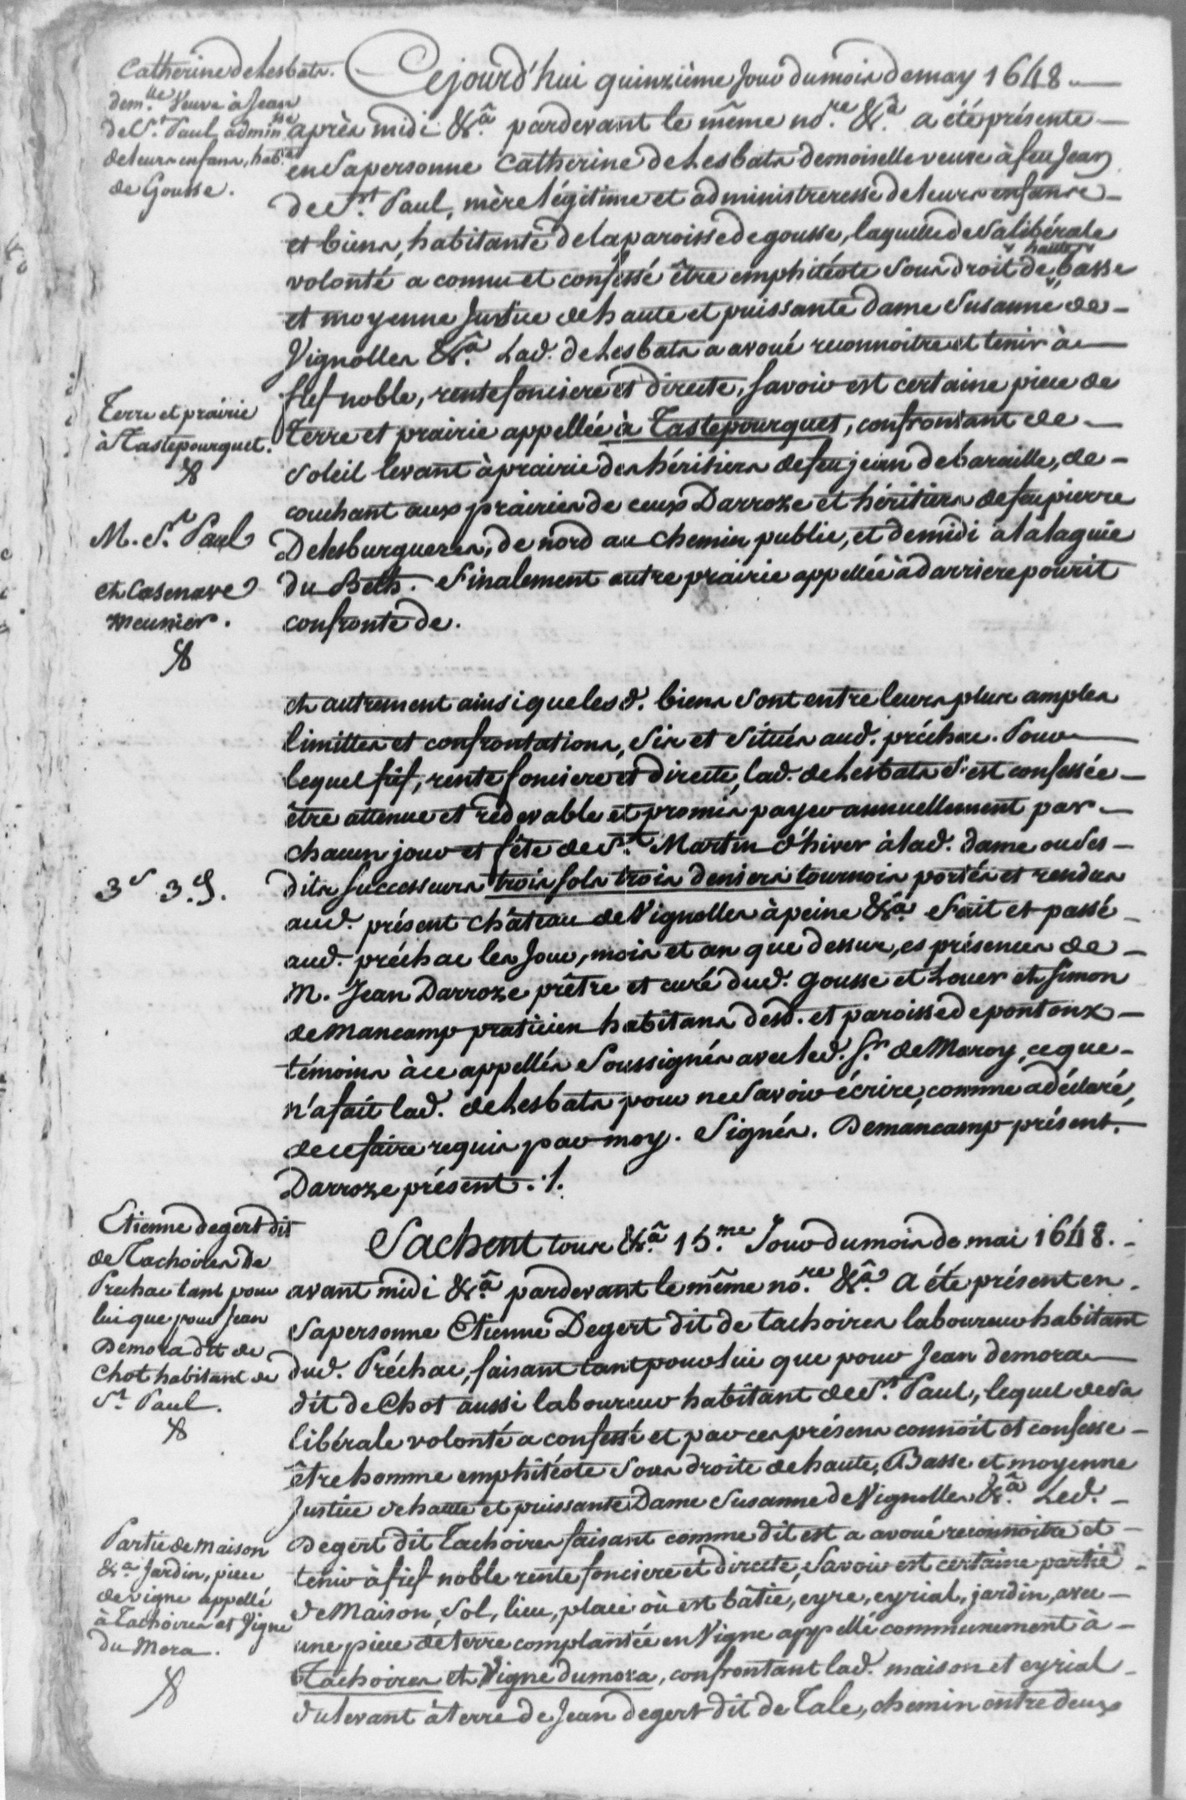 Catherine de Lesbats.
dem.lle Veuve à Jean
de S.t Paul, admin.sse
de leurs enfans, hab.te
de Gousse.
Cejourd'hui quinzième Jour du mois de may 1648.
après midi &.a pardevant le même no.re &.a a été présente
en Sa personne Catherine de Lesbats demoiselle veuve à feu Jean
de S.t Paul, mère légitime et administreresse de leurs enfans
et biens, habitante de la paroisse de gousse, laquelle de Sa libérale
volonté a connu et confessé être emphitéote Sous droit de haute basse
et moyenne Justice de haute et puissante dame Susanne de
Vignolles &.a Lad. de Lesbats a avoué reconnoitre et tenir à
fief noble, rente fonciere et directe, Savoir est certaine piece de
Terre et prairie
à Tastepourquet.
terre et prairie appellée à Tastepourquet, confrontant de
Soleil levant à prairie des héritiers de feu jean de baraille, de
couchant aux prairies de ceux Darroze et héritiers de feu pierre
M. S.t Paul
Delesburgueres, de nord au chemin public, et de midi à la lagüe
et Casenave
meunier.
du Beth. Finalement autre prairie appellée à darrierepourit
confronte de.
et autrement ainsi que lesd. biens Sont entre leurs plus amples
limittes et confrontations, Sis et Situés aud. préchac. Pour
lequel fief, rente fonciere et directe, lad. de Lesbats S'est confessée
être attenue et redevable et promis payer annuellement par
chacun jour et fête de S.t Martin d'hiver à lad. dame ou Ses
3 s 3. d.
dits Successeurs trois sols trois deniers tournois portés et rendus
aud. présent château de Vignolles à peine &.a Fait et passé
aud. préchac les Jour, mois et an que dessus, es présences de
M. Jean Darroze prêtre et curé dud. Gousse et Louer et Simon
de Mancamp praticien habitans desd. et paroisse de pontonx
témoins à ce appellés Soussignés avec led. S.r de Meroy, ce que
n'a fait lad. de Lesbats pour ne Savoir écrire, comme a déclaré,
de ce faire requis par moy. Signés. Demancamp présent.
Darroze présent ./.
Etienne degert dit
de Tachoires de
Préchac tant pour
lui que pour Jean
Demora dit de
Chot habitant de
S.t Paul.
Sachent tous &.a 15.me Jour du mois de mai 1648.
avant midi &.a pardevant le même no.re &.a a été présent en
Sa personne Etienne Degert dit de tachoires laboureur habitant
dud. Préchac, faisant tant pour lui que pour Jean demora
dit de Chot aussi laboureur habitant de S.t Paul, lequel de Sa
libérale volonté a confessé et par ces présens connoit et confesse
être homme emphitéote Sous droite de haute, Basse et moyenne
Justice de haute et puissante Dame Susanne de Vignolles &.a Led.
Partie de maison
&.a Jardin, piece
de vigne appellé
à Tachoires et Vigne
du Mora.
Degert dit Tachoires faisant comme dit est a avoué reconnoitre et
tenir à fief noble rente fonciere et directe, Savoir est certaine partie
de Maison, Sol, lieu, place où est bâtie, eyre, eyrial, jardin, avec
une piece de terre complantée en Vigne appellé communement à
Tachoires et Vigne dumora, confrontant lad. maison et eyrial
du levant à terre de Jean degert dit de Tale, chemin entre deux